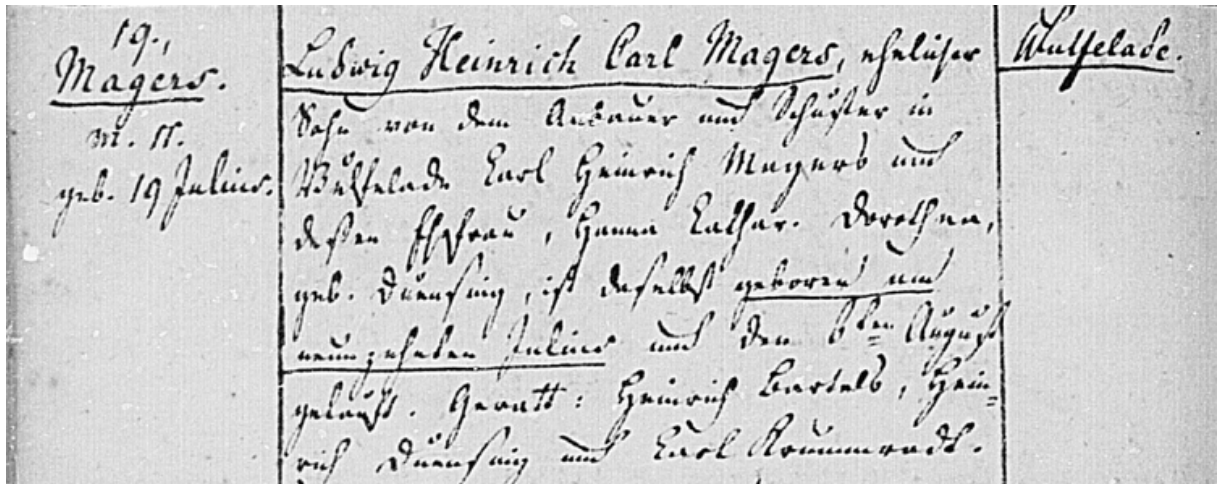 19.,
Magers.
geb. 19 Julius.
Ludwig Heinrich Carl Magers, ehelicher
Sohn von dem Anbauer und Schuster in
Wulfelade Karl Heinrich Magers und
deßen Ehefrau, Hanna Kathar. Dorothea,
geb. Duensing, ist daselbst geboren am
neunzehnten Julius und den 6ten August
getauft. Gevatt: Heinrich Bartels, Hein=
rich Duensing und Karl
Wulfelade.